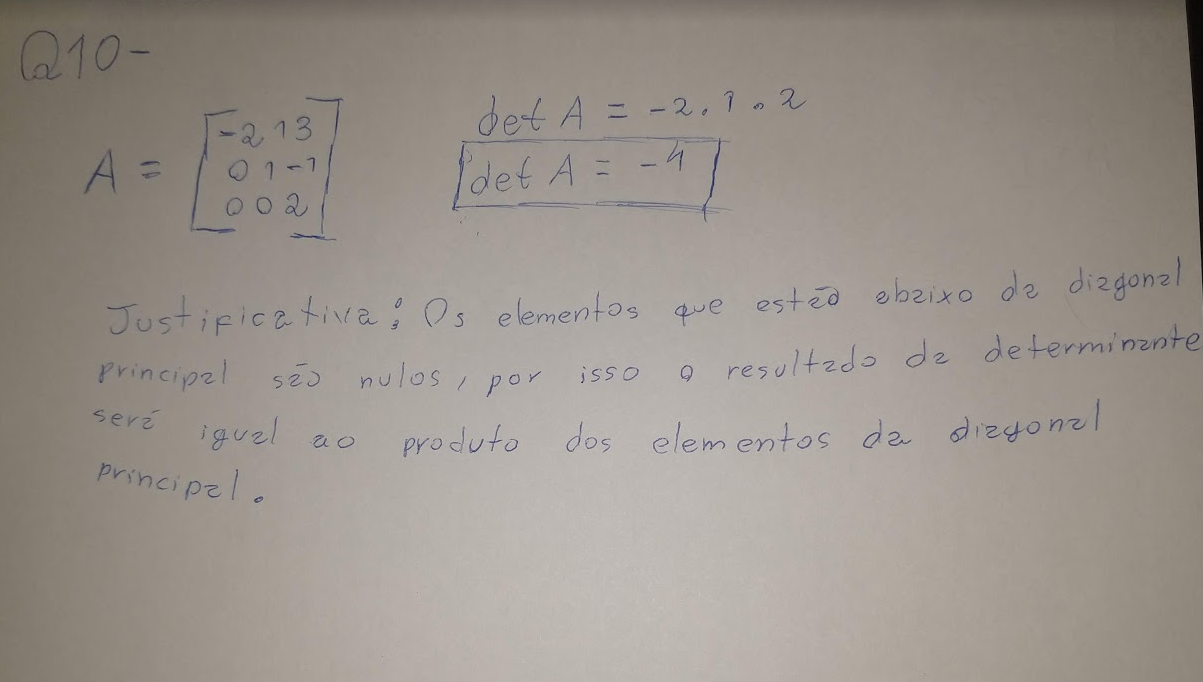 Q10-
-2 1 3
A = 0 1 -1
0 0 2
det A = -2.1.2
det A = -4
Justificativa: Os elementos que estão abaixo da diagonal
principal são nulos, por isso o resultado da determinante
será igual ao produto dos elementos da diagonal
principal.